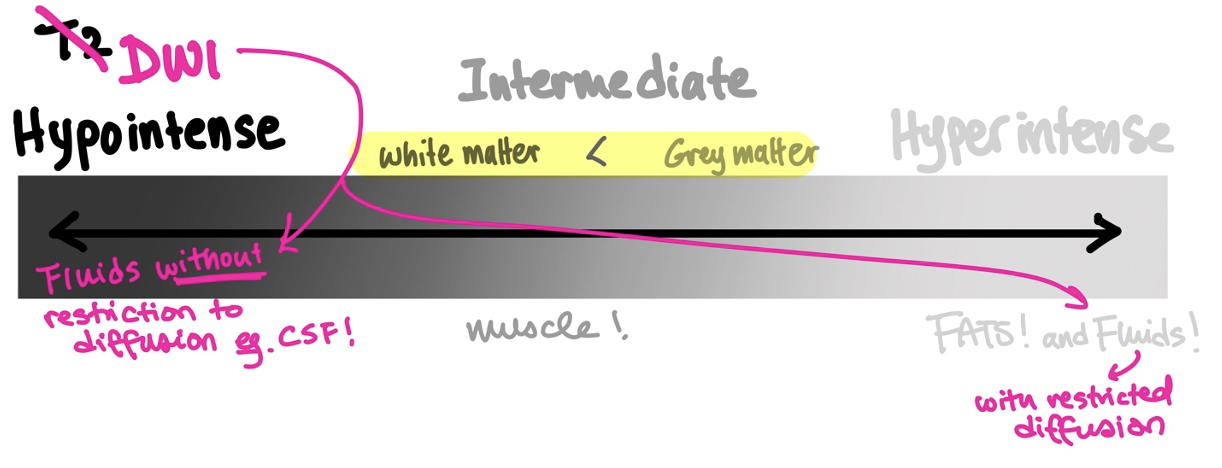 T2 DWI
Intermediate
Hypointense
Hyperintense
white matter < Grey matter
Fluids without
restriction to
diffusion eg. CSF!
muscle!
FATS! and Fluids!
with restricted
diffusion